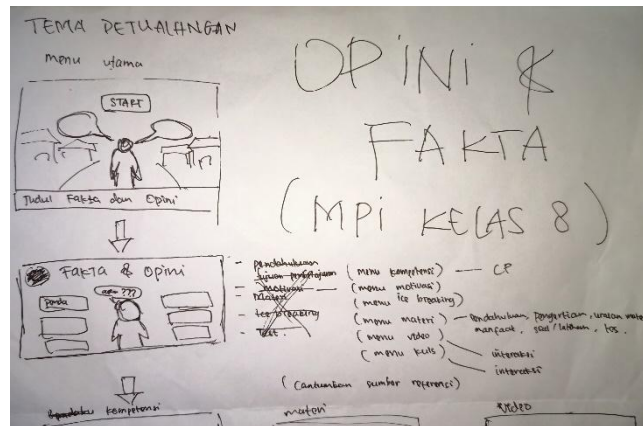 TEMA PETUALANGAN
menu utama
START
Judul Fakta dan Opini
OPINI &
FAKTA
(MPI KELAS 8)
Fakta & Opini
- pendahuluan
tujuan pembelajaran
- motivasi
materi
- ice breaking
- Test.
(menu kompetensi) — CP
(menu motivasi)
(menu ice breaking)
(menu materi) - pendahuluan, pengertian, uraian
manfaat, soal/latihan, tes.
(menu video)
interaksi
(menu kuis)
interaksi
(Cantumkan sumber referensi)
kompetensi
materi
video